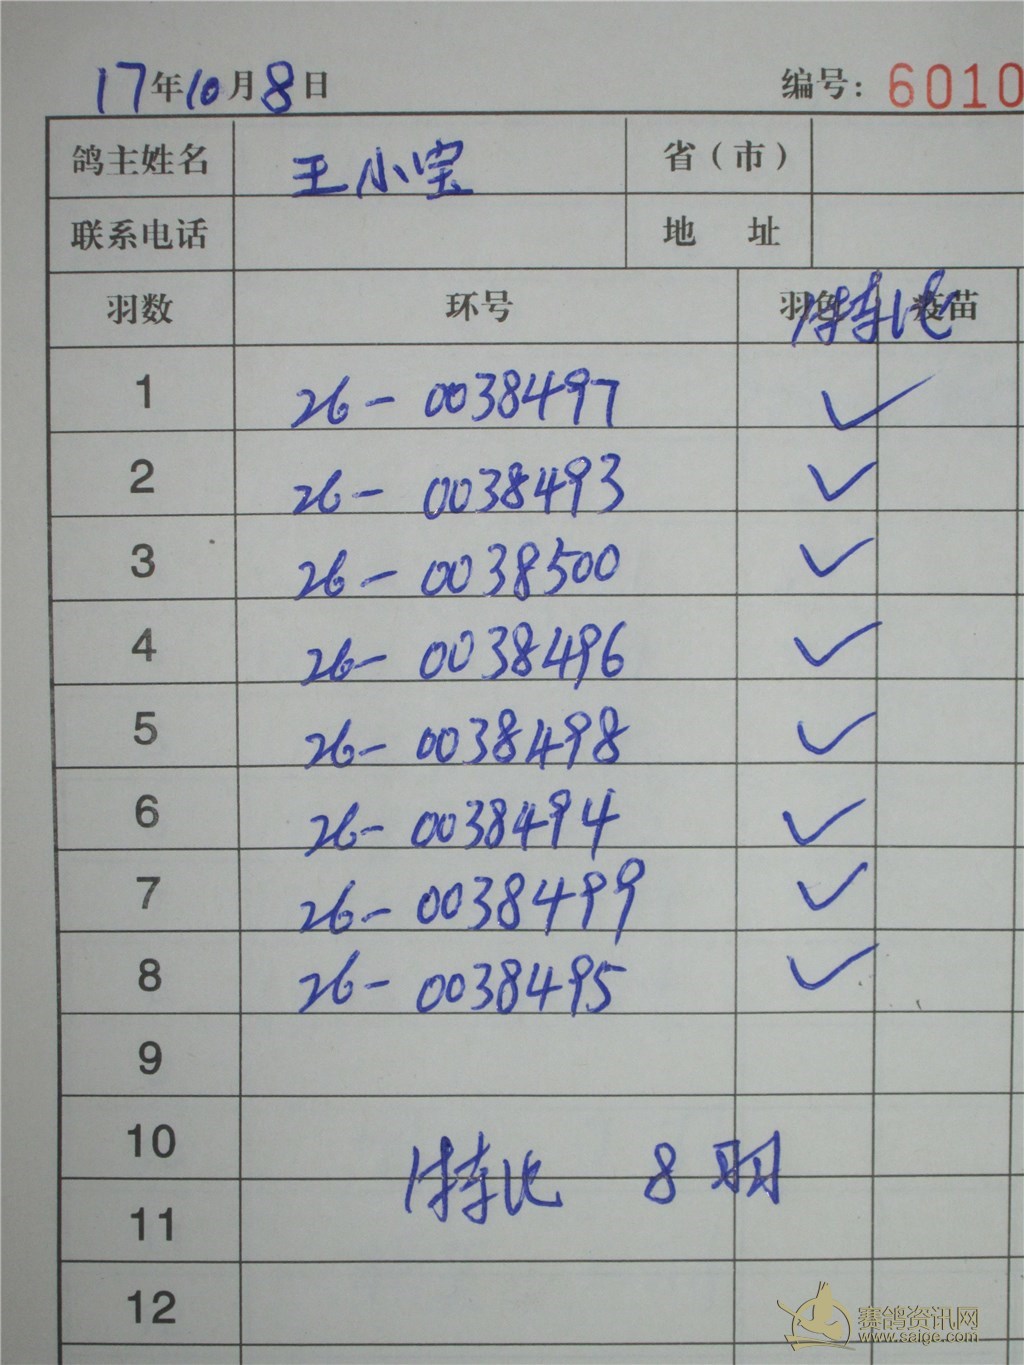 17年10月8日 编号: 6010
鸽主姓名 王小宝 省(市)
联系电话 地 址
羽数 环号 羽色 疫苗
1 26-0038497 ✓
2 26-0038493 ✓
3 26-0038500 ✓
4 26-0038496 ✓
5 26-0038498 ✓
6 26-0038494 ✓
7 26-0038499 ✓
8 26-0038495 ✓
9
10
8羽
11
12
赛鸽资讯网
www.saige.com